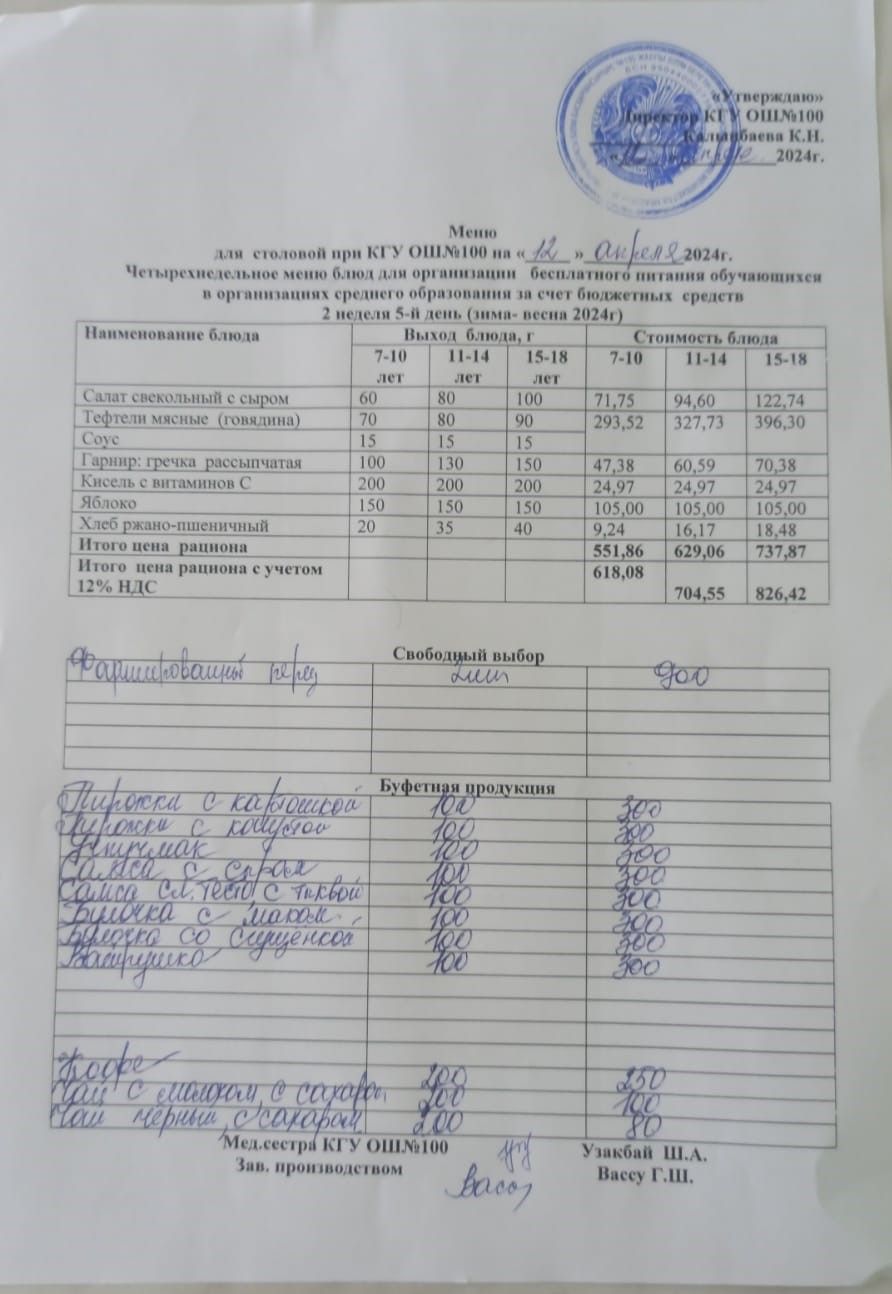 «Утверждаю»
Директор КГУ ОШ№100
Калынбаева К.Н.
2024г.
Меню
для столовой при КГУ ОШ№100 на « 12 » апреля 2024г.
Четырехнедельное меню блюд для организации бесплатного питания обучающихся
в организациях среднего образования за счет бюджетных средств
2 неделя 5-й день (зима- весна 2024г)
Наименование блюда Выход блюда, г Стоимость блюда
7-10 лет 11-14 лет 15-18 лет 7-10 11-14 15-18
Салат свекольный с сыром 60 80 100 71,75 94,60 122,74
Тефтели мясные (говядина) 70 80 90 293,52 327,73 396,30
Соус 15 15 15
Гарнир: гречка рассыпчатая 100 130 150 47,38 60,59 70,38
Кисель с витаминов С 200 200 200 24,97 24,97 24,97
Яблоко 150 150 150 105,00 105,00 105,00
Хлеб ржано-пшеничный 20 35 40 9,24 16,17 18,48
Итого цена рациона 551,86 629,06 737,87
Итого цена рациона с учетом 12% НДС 618,08 704,55 826,42
Свободный выбор
Фаршированный перец 900
Буфетная продукция
Пирожки с картошкой 100 300
Пирожки с капустой 100 300
100 300
Самса с сыром 100 300
Самса сл. тесто с тыквой 100 300
Булочка с маком 100 300
Булочка со сгущёнкой 100 300
Ватрушка 100 300
Кофе 200 250
Чай с молоком, с сахаром 200 100
Чай черный, с сахаром 200 80
Мед.сестра КГУ ОШ№100 Узакбай Ш.А.
Зав. производством Вассу Г.Ш.